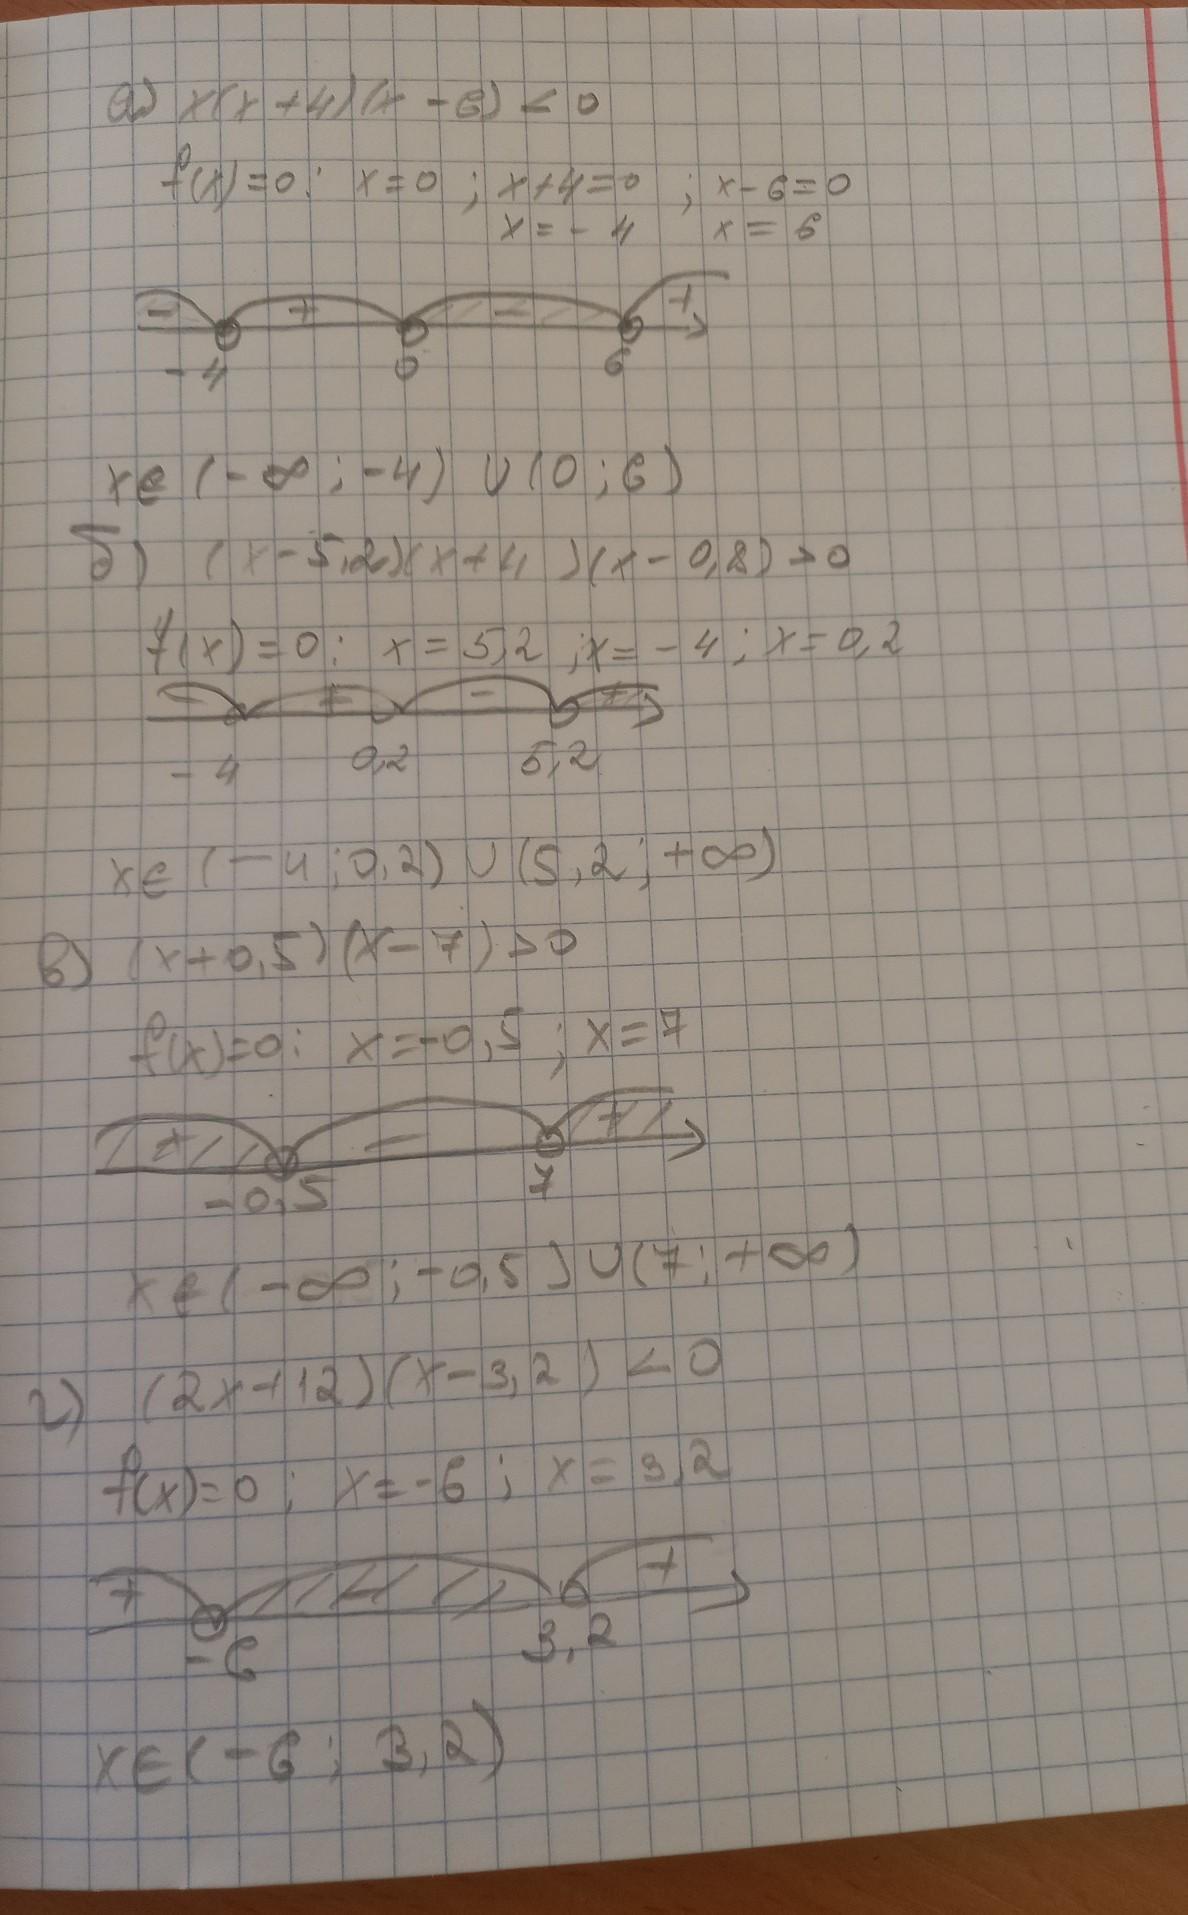 а) x(x+4)(x-6) < 0
f(x)=0: x=0 ; x+4=0 ; x-6=0
x=-4 x=6
- + - +
-4 0 6
x∈ (-∞;-4) ∪ (0;6)
б) (x-5,2)(x+4)(x-0,2) >0
f(x)=0: x=5,2 ; x=-4; x=0,2
- + - +
-4 0,2 5,2
x∈ (-4;0,2) ∪ (5,2;+∞)
в) (x+0,5)(x-7)>0
f(x)=0: x=-0,5 ; x=7
+ - +
-0,5 7
x∈(-∞;-0,5)∪(7;+∞)
г) (2x+12)(x-3,2) < 0
f(x)=0; x=-6; x=3,2
+ - +
-6 3,2
x∈(-6; 3,2)